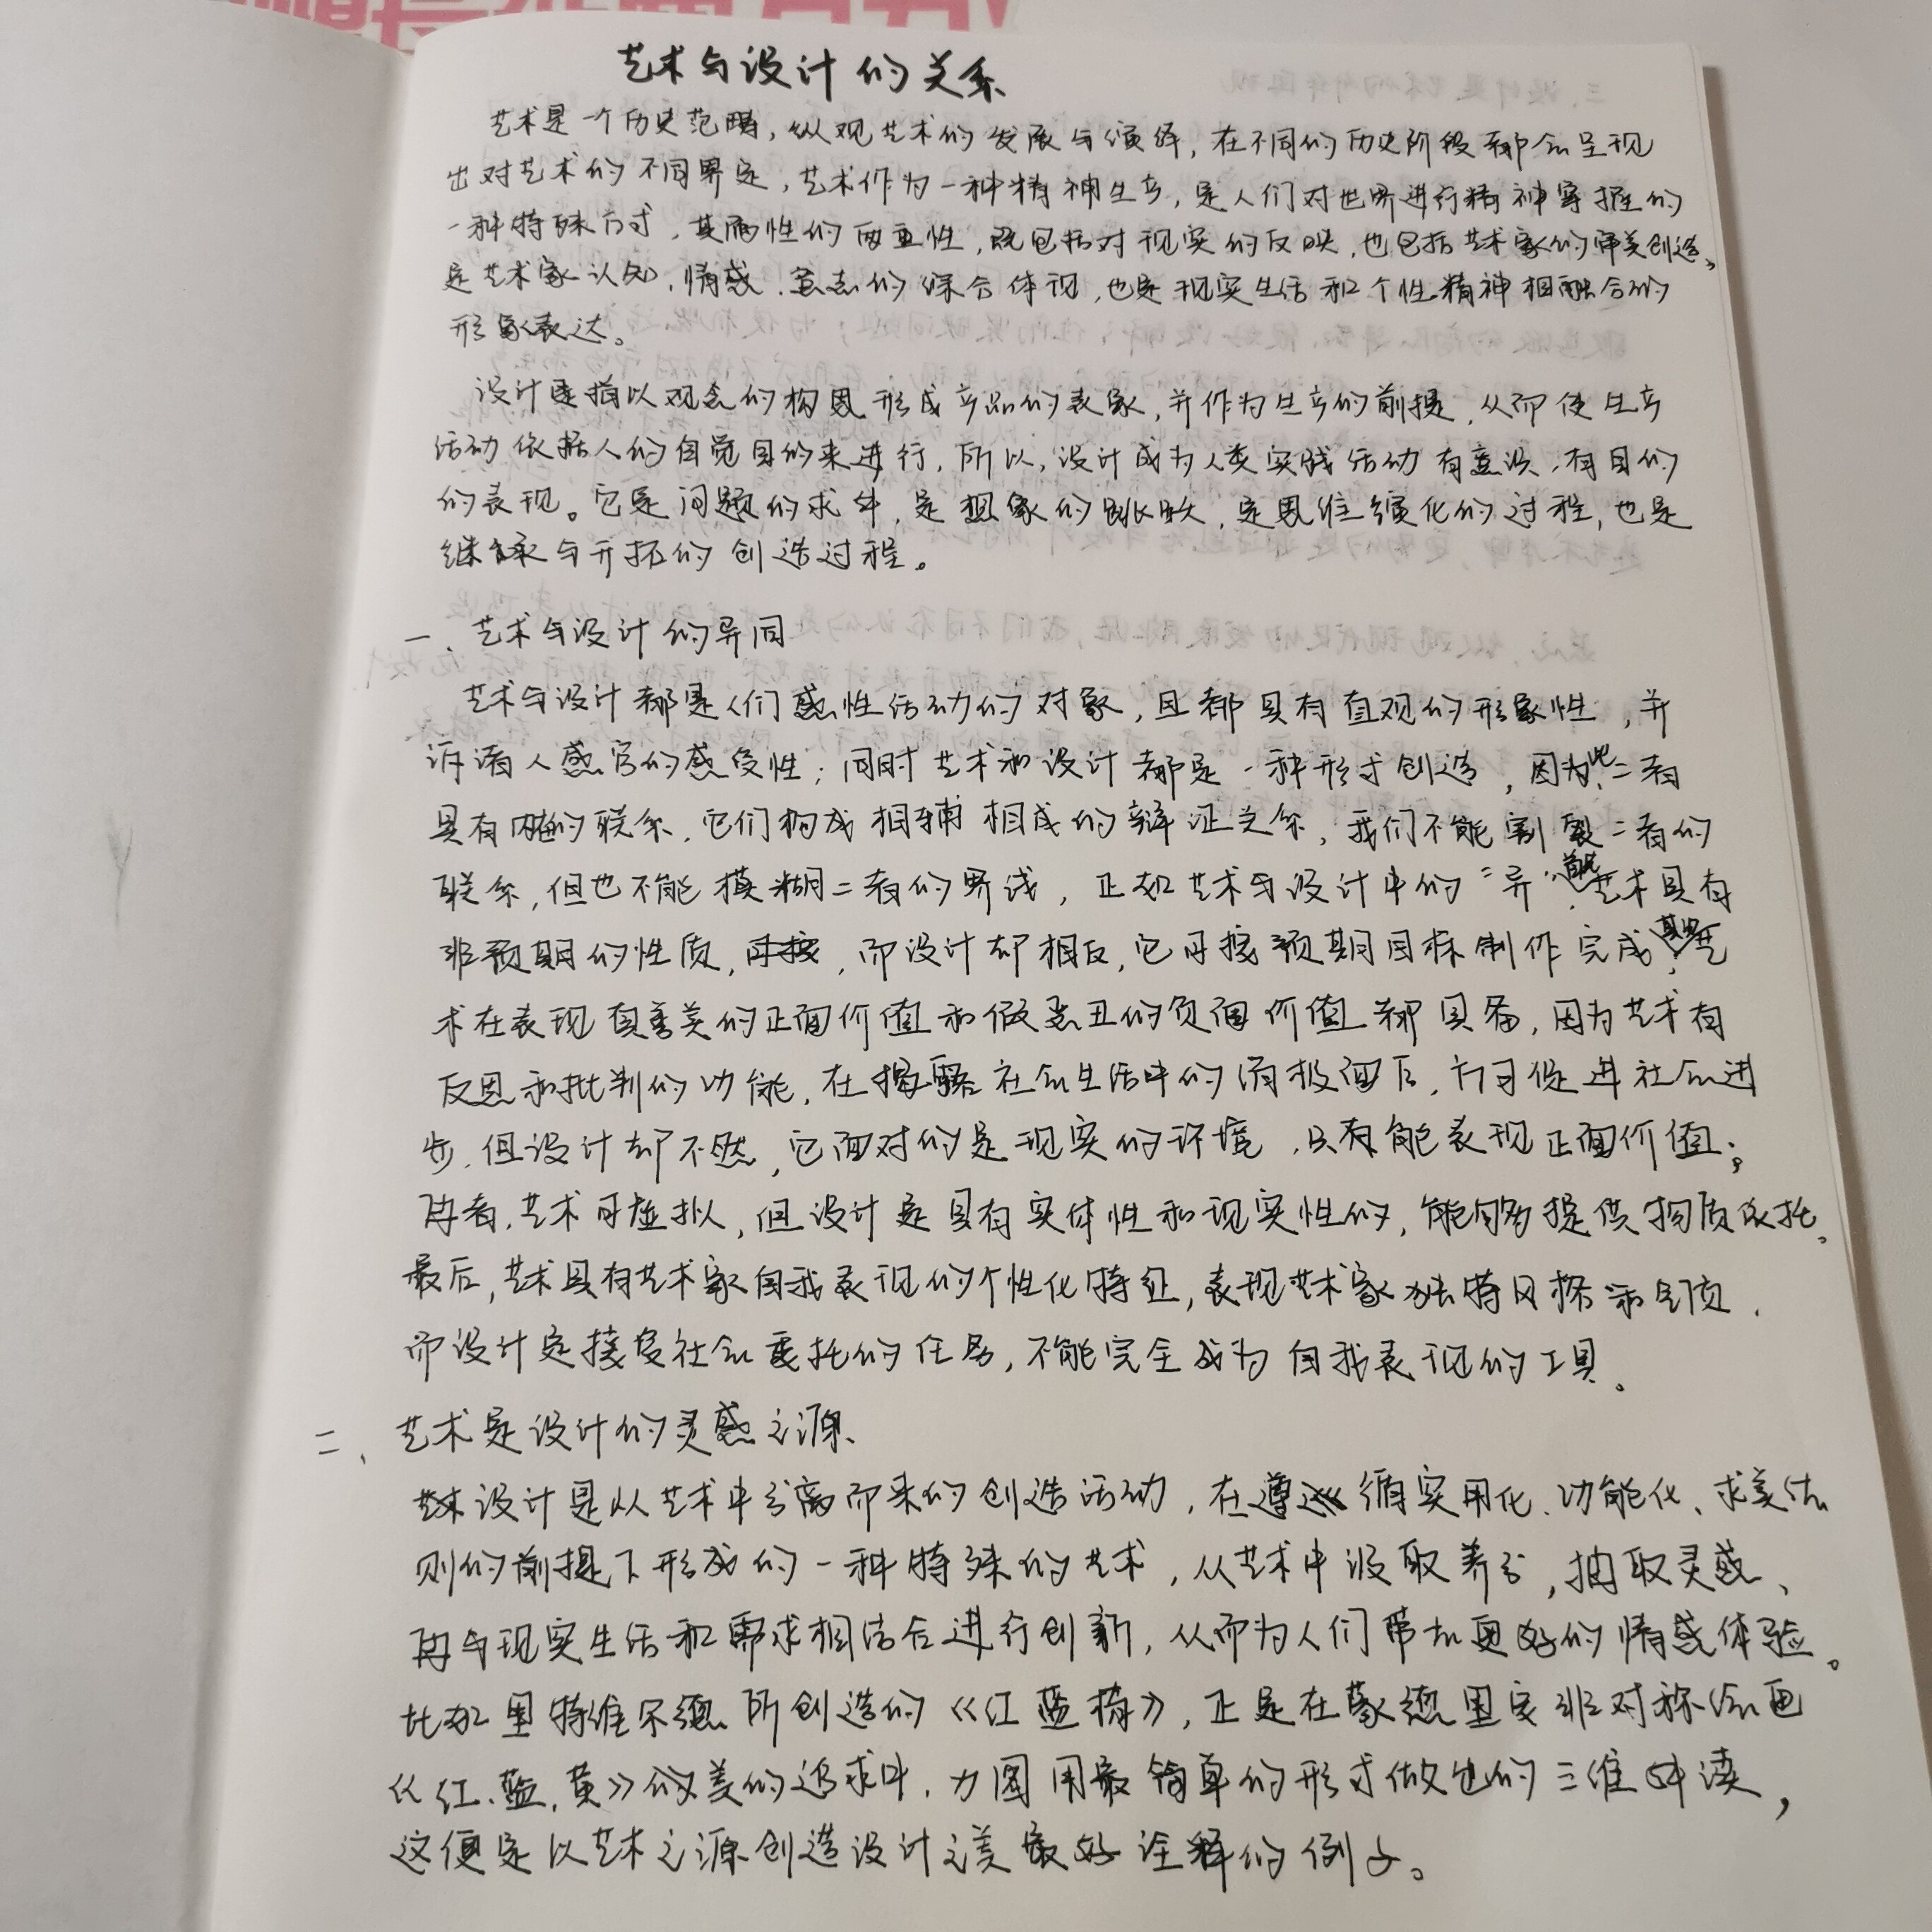 艺术与设计的关系
艺术是一个历史范畴，纵观艺术的发展与演绎，在不同的历史阶段都会呈现
出对艺术的不同界定，艺术作为一种精神生产，是人们对世界进行精神掌握的
一种特殊方式，其属性的两重性，既包括对现实的反映，也包括艺术家的审美创造。
是艺术家认知、情感、意志的综合体现，也是现实生活和个性精神相融合的
形象表达。
设计是指以观念的构思形成产品的表象，并作为生产的前提，从而使生产
活动依据人的自觉目的来进行，所以，设计成为人类实践活动有意识、有目的
的表现。它是问题的求解，是想象的跳跃，是思维演化的过程，也是
继承与开拓的创造过程。
一、艺术与设计的异同
艺术与设计都是人们感性活动的对象，且都具有直观的形象性，并
诉诸人感官的感受性；同时艺术和设计都是一种形式创造，因为此二者
具有内在的联系，它们构成相辅相成的辩证关系，我们不能割裂二者的
联系，但也不能模糊二者的界线，正如艺术与设计中的“异”，首先艺术具有
非预期的性质，而设计却相反，它可按预期目标制作完成，其次艺
术在表现真善美的正面价值和假恶丑的负面价值都具备，因为艺术有
反思和批判的功能，在揭露社会生活中的消极面后，方可促进社会进
步，但设计却不然，它面对的是现实的环境，只有能表现正面价值；
再者，艺术可虚拟，但设计是具有实体性和现实性的，能够提供物质依托。
最后，艺术具有艺术家自我表现的个性化特征，表现艺术家独特风格和气质，
而设计是接受社会委托的任务，不能完全成为自我表现的工具。
二、艺术是设计的灵感之源
设计是从艺术中分离而来的创造活动，在遵循实用化、功能化、求美法
则的前提下形成的一种特殊的艺术，从艺术中汲取养分，抽取灵感、
再与现实生活和需求相结合进行创新，从而为人们带去更好的情感体验。
比如里特维尔德所创造的《红蓝椅》，正是在蒙德里安非对称绘画
《红、蓝、黄》的美的追求中，力图用最简单的形式做出的三维解读，
这便是以艺术之源创造设计之美最好诠释的例子。